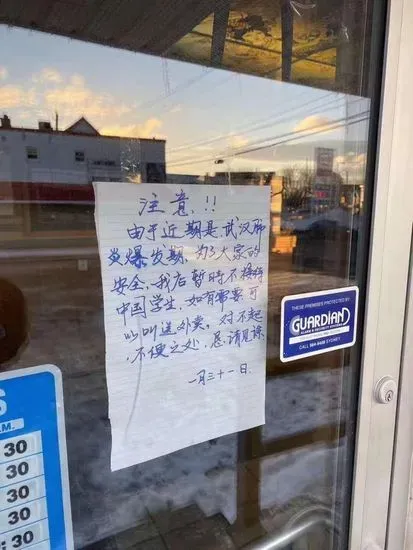 注意!!
由于近期是武汉肺
炎爆发期,为了大家的
安全,我店暂时不接待
中国学生,如有需要可
以叫送外卖,对不起
不便之处,恳请见谅.
一月三十一日
THESE PREMISES PROTECTED BY
GUARDIAN
ALARM & SECURITY SYSTEMS
SYDNEY
S
.M.
30
30
30
30
30